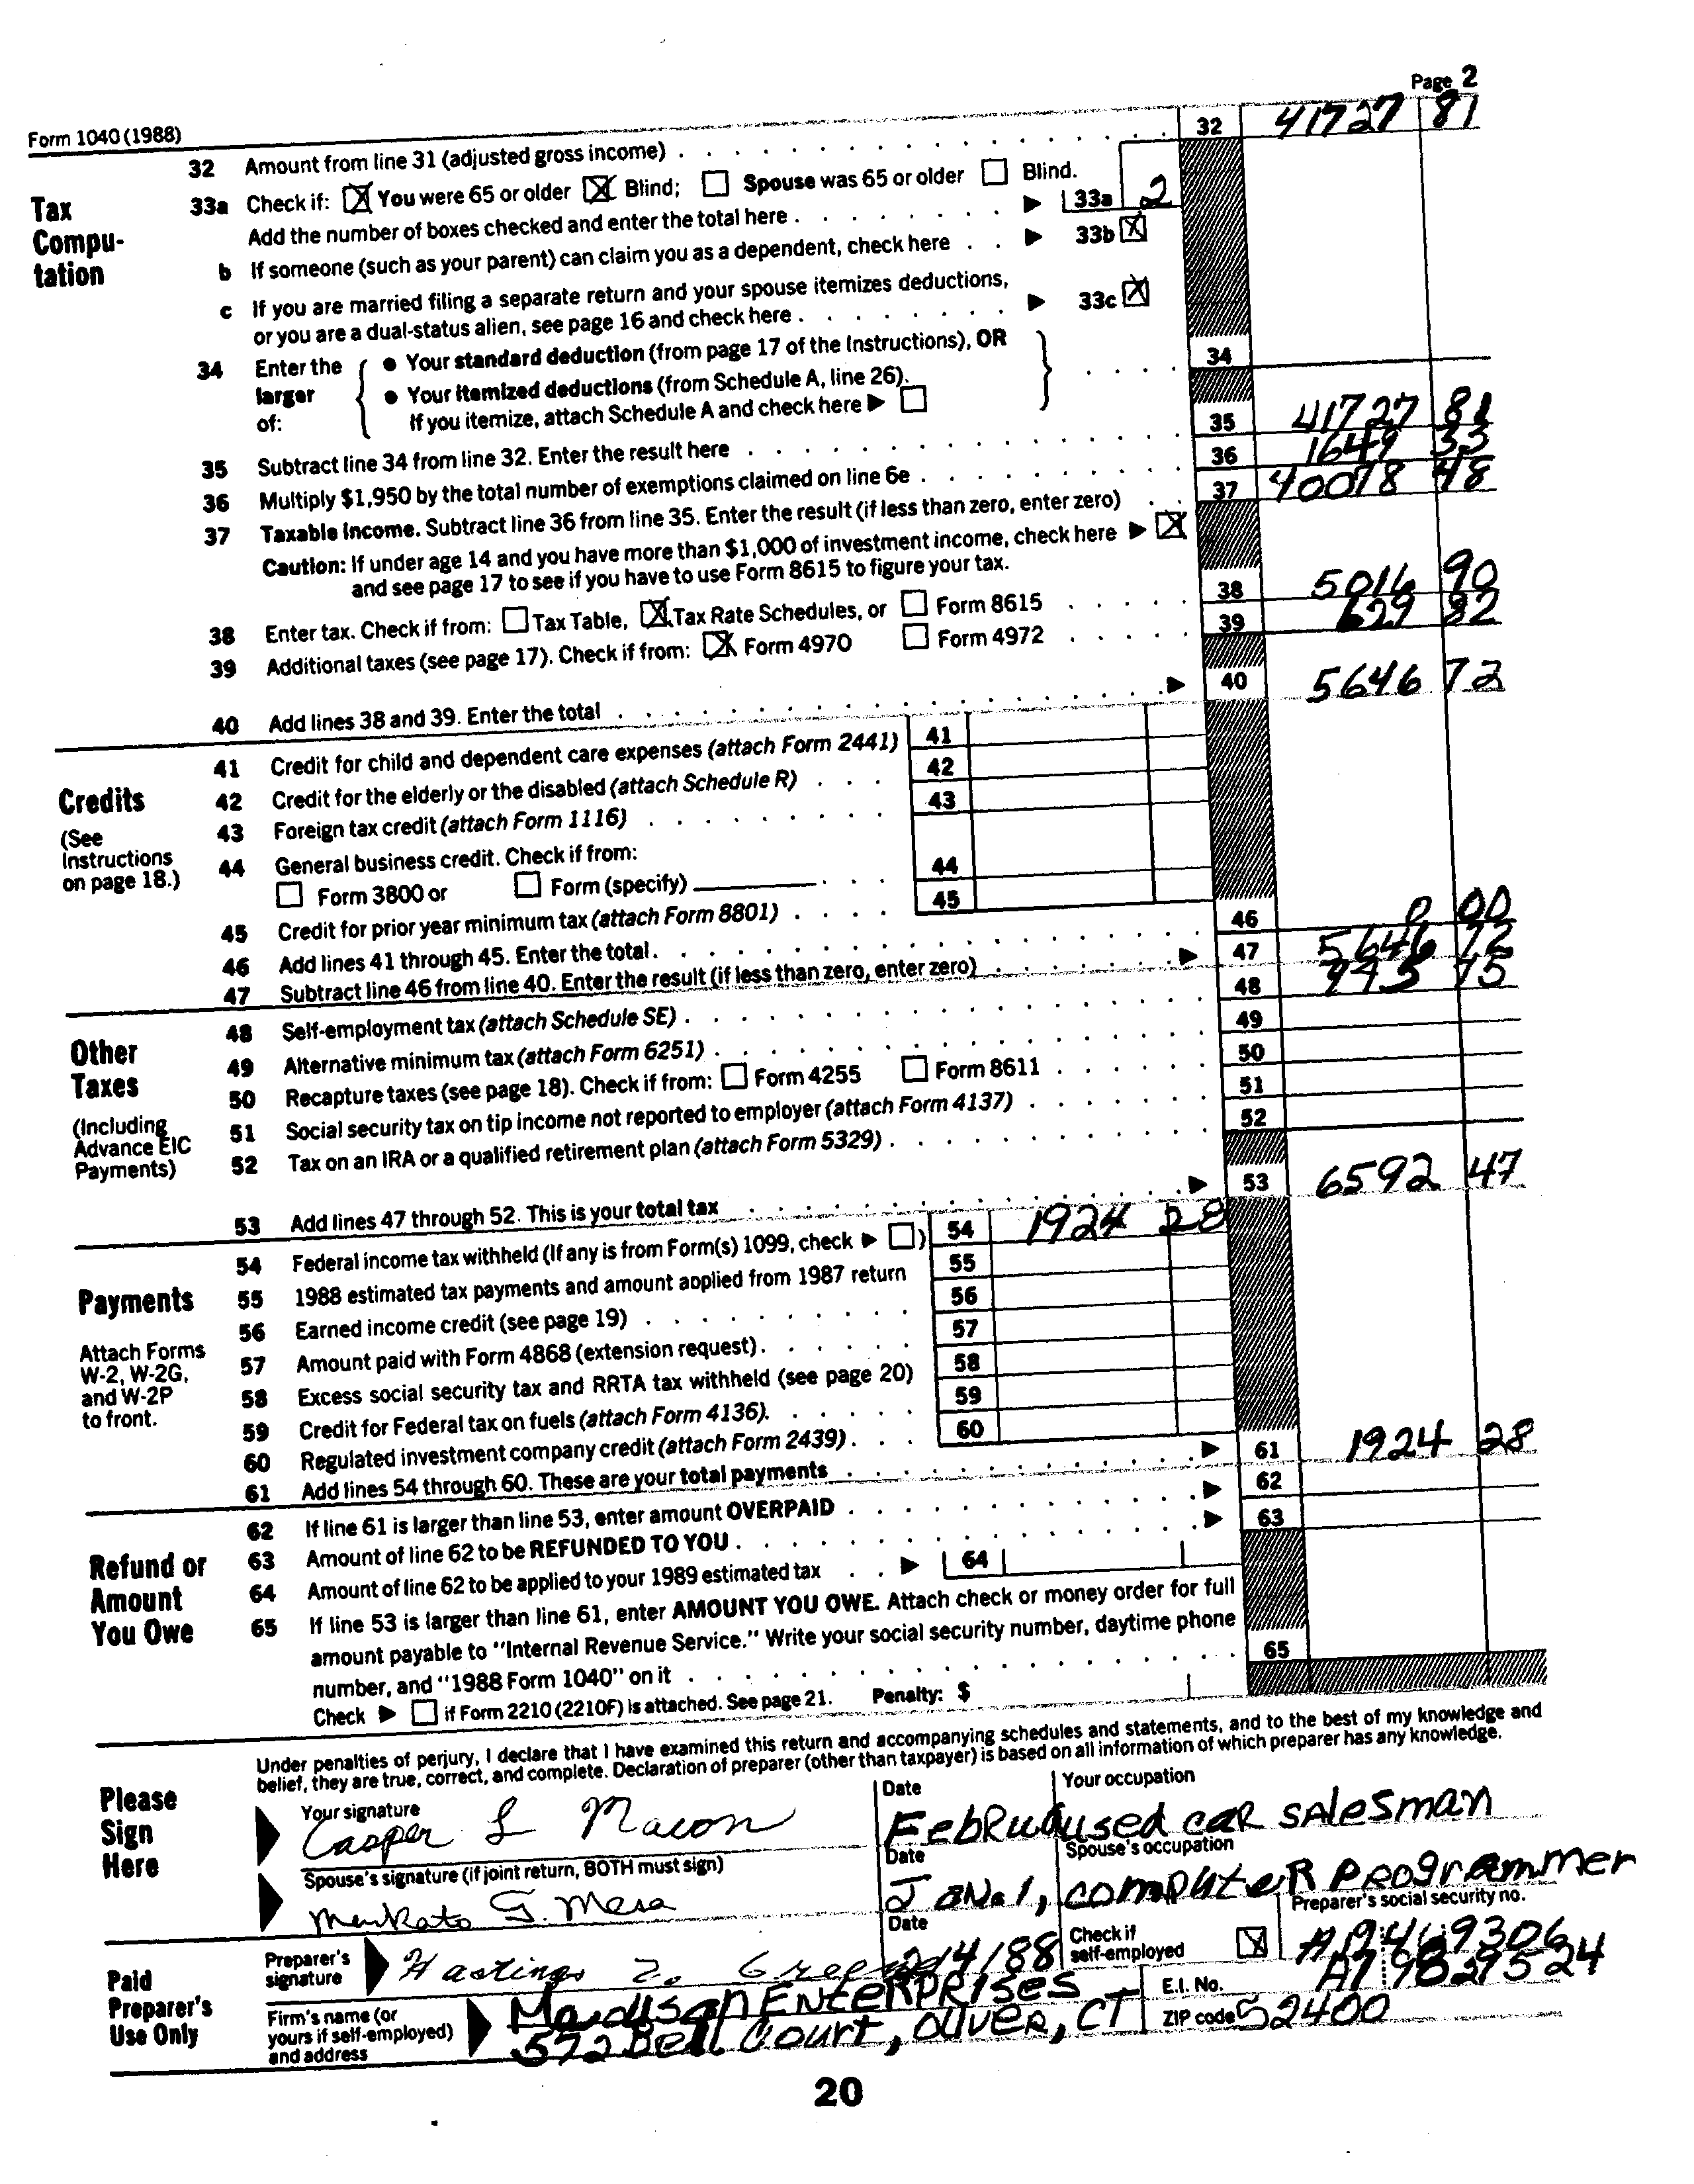 Page 2
Form 1040 (1988)
32 Amount from line 31 (adjusted gross income) 32 41727 81
Tax Compu-tation
33a Check if: You were 65 or older Blind; Spouse was 65 or older Blind.
Add the number of boxes checked and enter the total here 33a 2
b If someone (such as your parent) can claim you as a dependent, check here 33b
c If you are married filing a separate return and your spouse itemizes deductions,
or you are a dual-status alien, see page 16 and check here 33c
34 Enter the larger of: Your standard deduction (from page 17 of the Instructions), OR 34
Your itemized deductions (from Schedule A, line 26).
If you itemize, attach Schedule A and check here
35 Subtract line 34 from line 32. Enter the result here 35 41727 81
36 Multiply $1,950 by the total number of exemptions claimed on line 6e 36 1649 33
37 Taxable income. Subtract line 36 from line 35. Enter the result (if less than zero, enter zero) 37 40078 48
Caution: If under age 14 and you have more than $1,000 of investment income, check here
and see page 17 to see if you have to use Form 8615 to figure your tax.
38 Enter tax. Check if from: Tax Table, Tax Rate Schedules, or Form 8615 38 5016 90
39 Additional taxes (see page 17). Check if from: Form 4970 Form 4972 39 629 82
40 Add lines 38 and 39. Enter the total 40 5646 72
Credits
(See Instructions on page 18.)
41 Credit for child and dependent care expenses (attach Form 2441) 41
42 Credit for the elderly or the disabled (attach Schedule R) 42
43 Foreign tax credit (attach Form 1116) 43
44 General business credit. Check if from:
Form 3800 or Form (specify) 44
45 Credit for prior year minimum tax (attach Form 8801) 45
46 Add lines 41 through 45. Enter the total. 46 0 00
47 Subtract line 46 from line 40. Enter the result (if less than zero, enter zero) 47 5646 72
Other Taxes
(Including Advance EIC Payments)
48 Self-employment tax (attach Schedule SE) 48 75
49 Alternative minimum tax (attach Form 6251) 49
50 Recapture taxes (see page 18). Check if from: Form 4255 Form 8611 50
51 Social security tax on tip income not reported to employer (attach Form 4137) 51
52 Tax on an IRA or a qualified retirement plan (attach Form 5329) 52
53 Add lines 47 through 52. This is your total tax 53 6592 47
Payments
Attach Forms W-2, W-2G, and W-2P to front.
54 Federal income tax withheld (If any is from Form(s) 1099, check ) 54 1924 28
55 1988 estimated tax payments and amount applied from 1987 return 55
56 Earned income credit (see page 19) 56
57 Amount paid with Form 4868 (extension request) 57
58 Excess social security tax and RRTA tax withheld (see page 20) 58
59 Credit for Federal tax on fuels (attach Form 4136). 59
60 Regulated investment company credit (attach Form 2439) 60
61 Add lines 54 through 60. These are your total payments 61 1924 28
Refund or Amount You Owe
62 If line 61 is larger than line 53, enter amount OVERPAID 62
63 Amount of line 62 to be REFUNDED TO YOU 63
64 Amount of line 62 to be applied to your 1989 estimated tax 64
65 If line 53 is larger than line 61, enter AMOUNT YOU OWE. Attach check or money order for full
amount payable to "Internal Revenue Service." Write your social security number, daytime phone
number, and "1988 Form 1040" on it 65
Check if Form 2210 (2210F) is attached. See page 21. Penalty: $
Under penalties of perjury, I declare that I have examined this return and accompanying schedules and statements, and to the best of my knowledge and
belief, they are true, correct, and complete. Declaration of preparer (other than taxpayer) is based on all information of which preparer has any knowledge.
Please Sign Here
Your signature Casper L Macon
Date
Your occupation used caR sAlesman
Spouse's signature (if joint return, BOTH must sign) Mankato G. Mesa
Date JaN. 1,
Spouse's occupation computeR PROgrammer
Paid Preparer's Use Only
Preparer's signature Hastings Z. Greene
Date 2/4/88
Check if self-employed
Preparer's social security no.
Firm's name (or yours if self-employed) and address MadisonENteRPRIses
572 Bell Court, OLIVER, CT
E.I. No.
ZIP code 52400
20